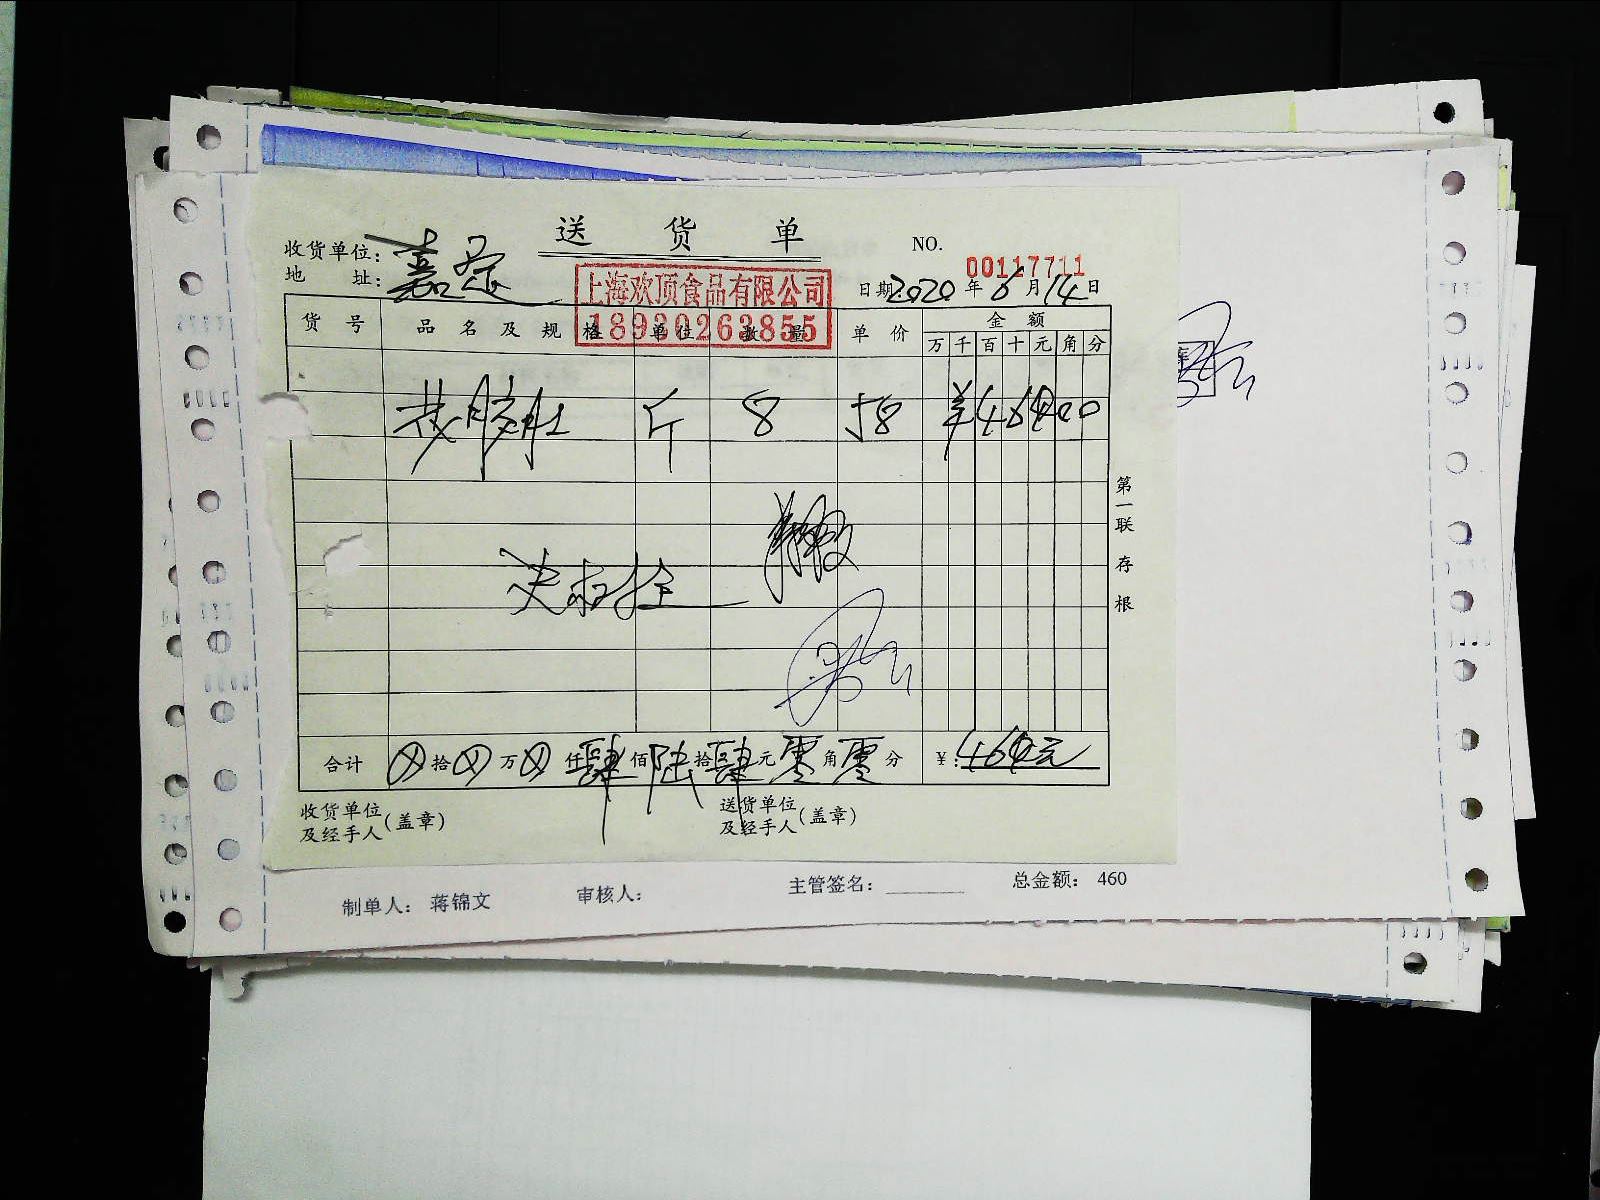 送 货 单
收货单位: 嘉定
NO. 00117711
地 址:
上海欢顶食品有限公司
18930263855
日期 2020 年 6 月 14 日
货 号 品 名 及 规 格 单 位 数 量 单 价 金 额
万 千 百 十 元 角 分
斤 8 58 ¥ 4 6 4 0 0
第一联 存根
合计 ⊗ 拾 ⊗ 万 ⊗ 仟 肆 佰 陆 拾 肆 元 零 角 零 分 ¥: 464元
收货单位及经手人(盖章) 送货单位及经手人(盖章)
制单人: 蒋锦文 审核人: 主管签名: 总金额: 460